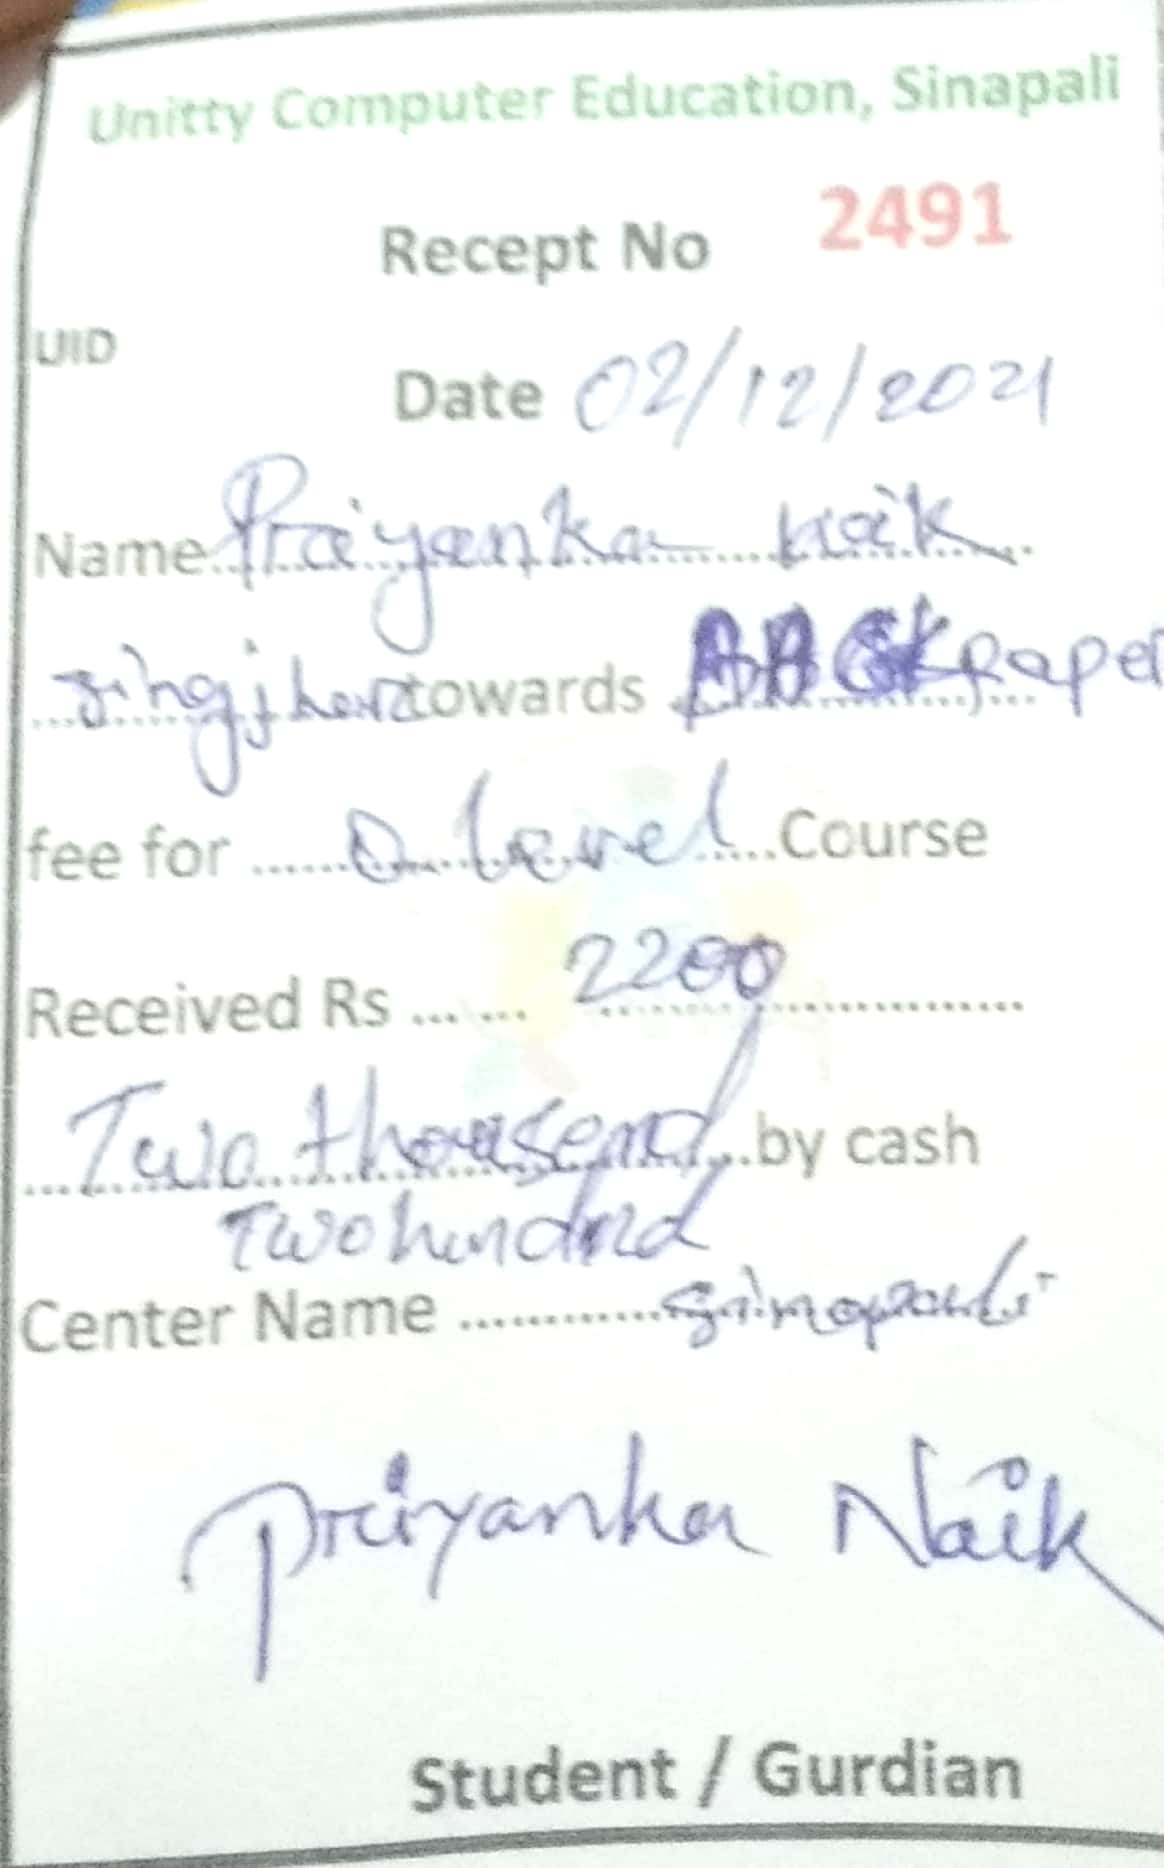 Unitty Computer Education, Sinapali
Recept No 2491
UID
Date 02/12/2021
Name Priyanka Naik
singjhar towards BACK paper
fee for ...... O level ..... Course
Received Rs ...... 2200 ......
Two thousend by cash
Two hundred
Center Name ............ Sinapali
Priyanka Naik
Student / Gurdian